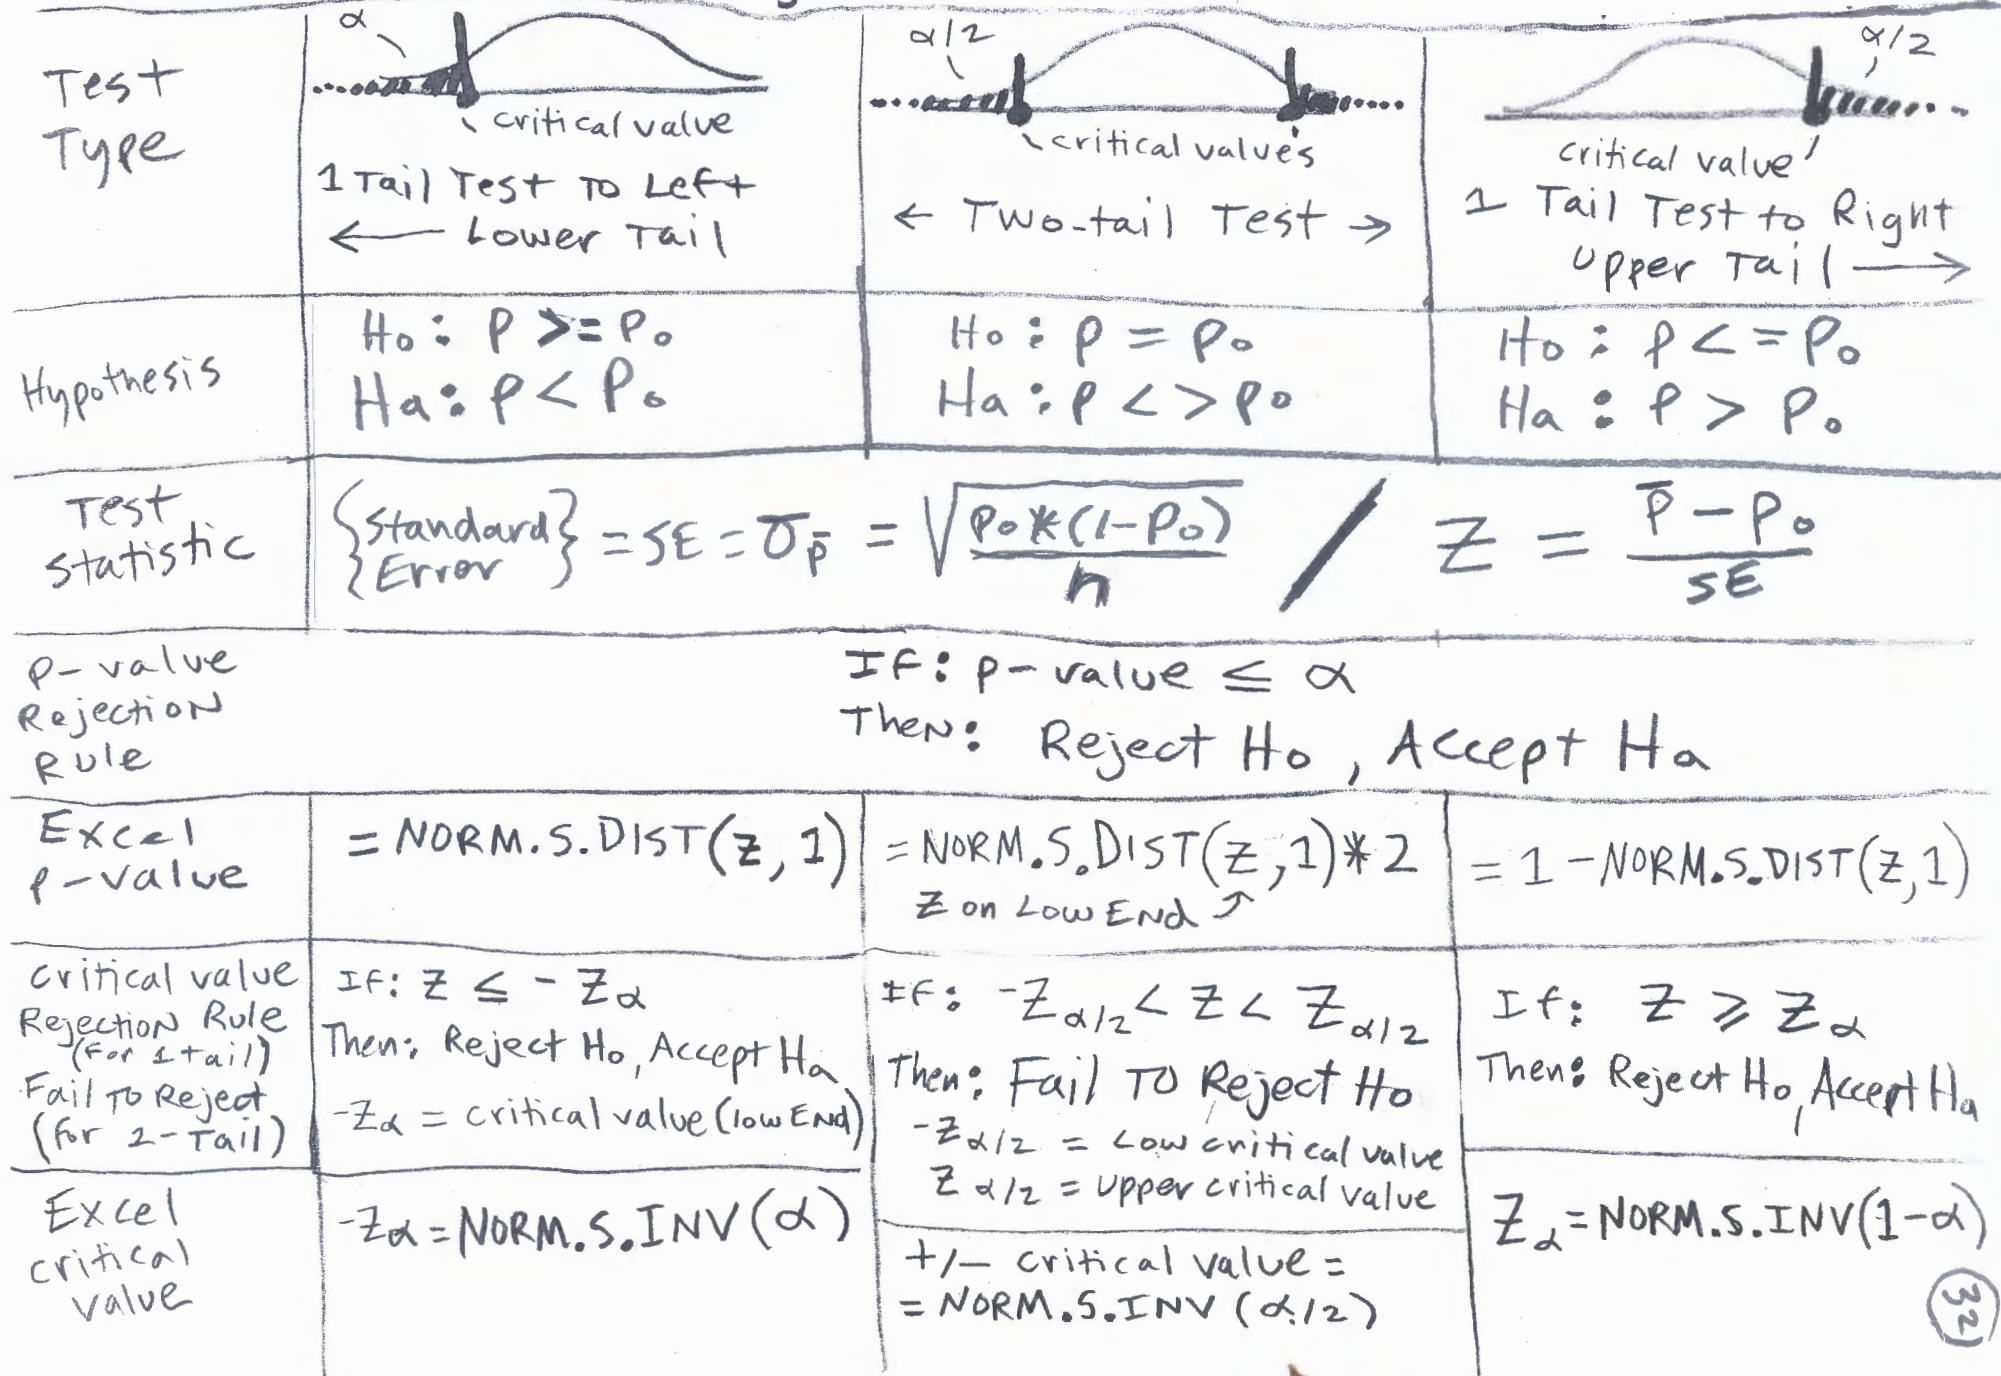 Test
Type
α
critical value
1 Tail Test To Left
← Lower Tail
α/2
critical values
← Two-tail Test →
α/2
critical value
1 Tail Test to Right
Upper Tail →
Hypothesis
Ho: P >= Po
Ha: P < Po
Ho: P = Po
Ha: P < > Po
Ho: P < = Po
Ha: P > Po
Test
Statistic
{Standard Error} = SE = σp̄ = √(Po*(1-Po)/n) / Z = (p̄ - Po)/SE
P-value
Rejection
Rule
If: p-value ≤ α
Then: Reject Ho, Accept Ha
Excel
p-value
= NORM.S.DIST(z, 1)
= NORM.S.DIST(z,1)*2
Z on Low End ↑
= 1 - NORM.S.DIST(z,1)
critical value
Rejection Rule
(for 1 tail)
Fail To Reject
(for 2-Tail)
If: Z ≤ - Zα
Then: Reject Ho, Accept Ha
-Zα = critical value (low End)
If: -Zα/2 < Z < Zα/2
Then: Fail To Reject Ho
-Zα/2 = Low critical value
Zα/2 = upper critical value
If: Z ≥ Zα
Then: Reject Ho, Accept Ha
Excel
critical
value
-Zα = NORM.S.INV(α)
+/- critical value =
= NORM.S.INV(α/2)
Zα = NORM.S.INV(1-α)
32